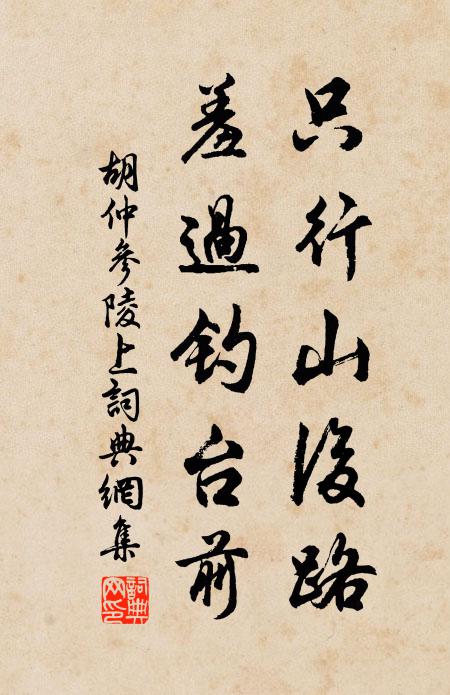 只行山後路
羞過釣台前
胡仲參陵上詞典網集
詞典網印